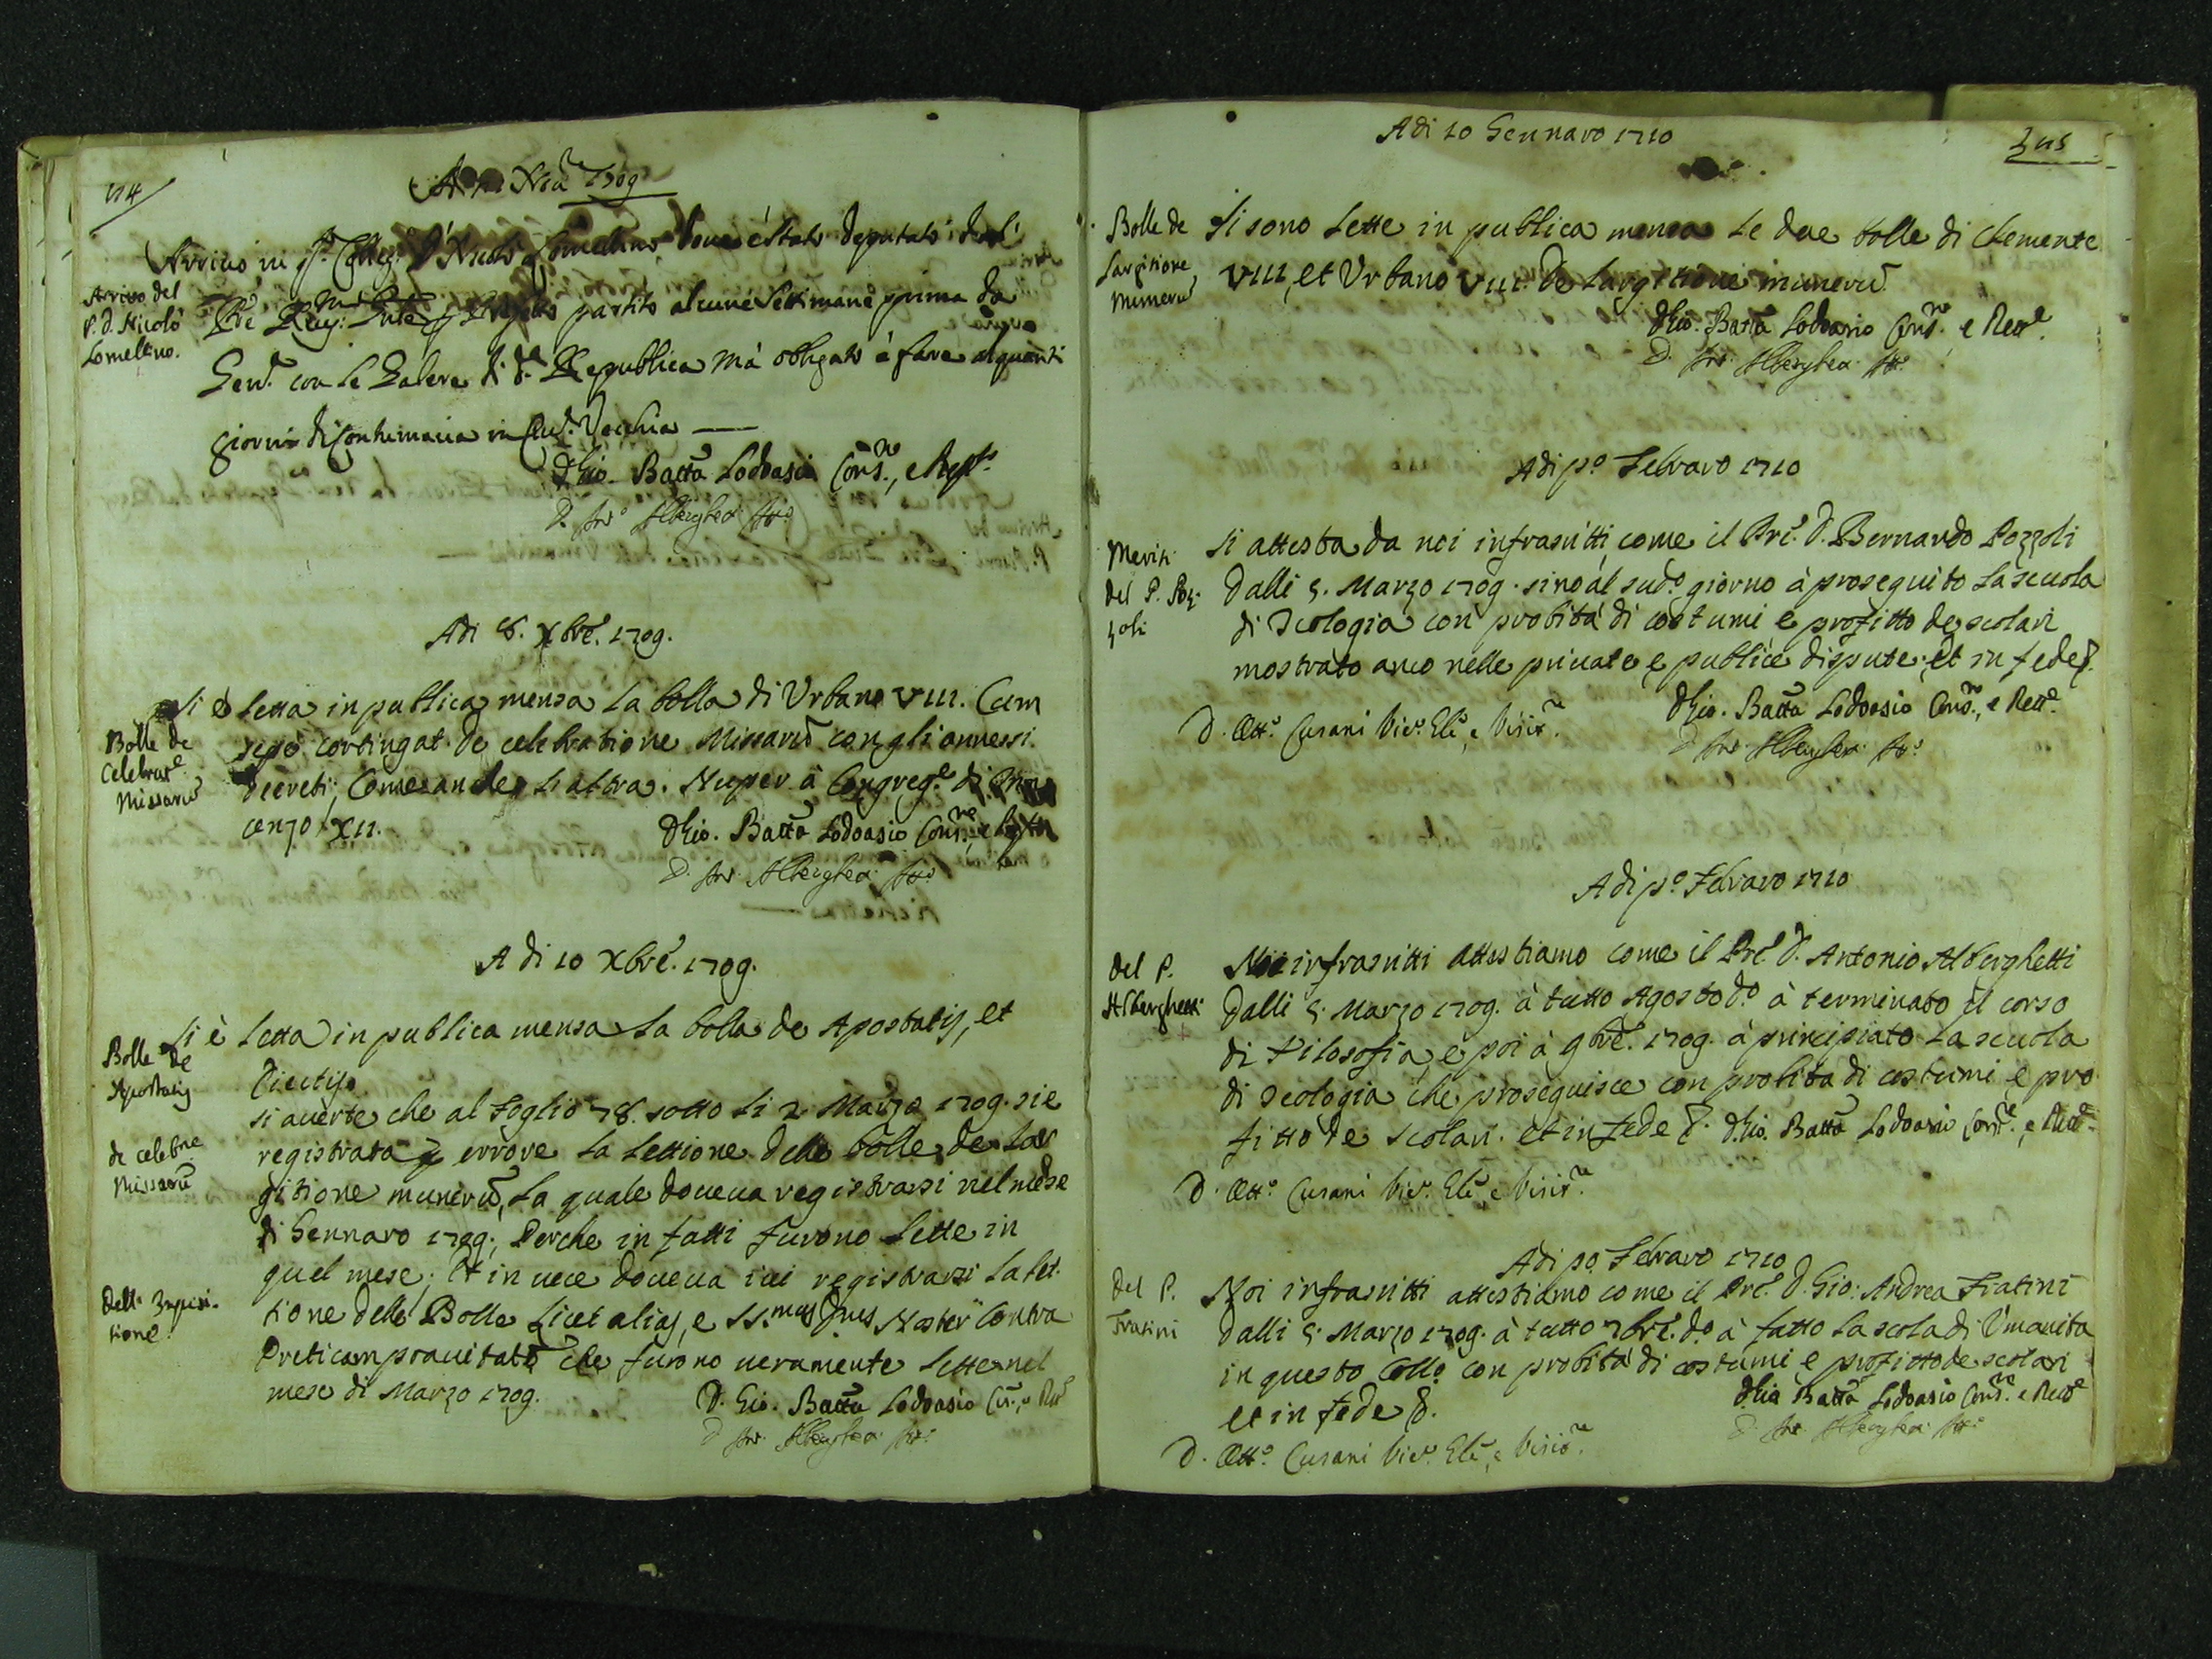 114
1709
Arrivò in Colleg. D. Nicolò Lomellino, doue è stato deputato dal
Arrivo del
P. D. Nicolò
Lomellino.
partito alcune settimane prima da
con le Galere di Republica mà obligato à fare alquanti
giorni di Contumacia in Ciu. Vecchia
D. Gio. Batta Lodoasio Cons.re, e Rett.
D. Ant.o Alberghetti
Adi 8. Xbre. 1709.
Si è letta in publica mensa la bolla di Urbano VIII. Cum
Bolle de
Celebrat.e
Missarū
sepe contingat de celebratione Missarū con gli annessi
decreti, Come anche l'altra. Nuper à Congreg.e di Inno
cenzo XII.
D. Gio. Batta Lodoasio Cons.re, e
D. Ant. Alberghetti
A di 10 Xbre. 1709.
Si è letta in publica mensa la bolla de Apostatis, et
Bolle de
Apostatis
Eiectis.
si auerte che al foglio 78. sotto li 2 Marzo 1709. si è
de celebre
Missarū
registrata p errore la lettione delle bolle de lar
gitione munerū, la quale doueua registrarsi nel mese
di Gennaro 1709; Perche in fatti furono lette in
quel mese; Et in uece doueua iui registrarsi la let
Dell'Inquisi-
tione.
tione delle Bolle Licet alias, e SS.mus Dnus Noster Contra
prauitatē che furono ueramente lette nel
mese di Marzo 1709.
D. Gio. Batta Lodoasio Cōs., e Rett
D. Ant. Alberghetti
115
Adi 10 Gennaro 1710
Bolle de
Largitione
Munerū
Si sono lette in publica mensa le due bolle di Clemente
VIII, et Urbano VIII. De largitione munerū.
D. Gio. Batta Lodoasio Cons.re e Rett.e
D. Ant. Alberghetti
Adi p.o Febraro 1710
Meriti
del P. Poz-
zoli
Si attesta da noi infrascritti come il Pre. D. Bernardo Pozzoli
Dalli 5. Marzo 1709. sino al sud.o giorno à proseguito la scuola
di Teologia con probità di costumi e profitto de scolari
mostrato anco nelle priuate e publice dispute. et in fede &.
D. Gio. Batta Lodoasio Cons.re, e Rett.e
D. Ott.o Cusani Vic.o Gle, e Visit.re
D. Ant. Alberghetti
Adi p.o Febraro 1710
Del P.
Alberghetti
Noi infrascritti attestiamo come il Pre. D. Antonio Alberghetti
Dalli 5. Marzo 1709. à tutto Agosto d.o à terminato il corso
di Filosofia, e poi à 9bre. 1709. à principiato la scuola
di Teologia che proseguisce con probità di costumi e pro
fitto de scolari. et in fede &. D. Gio. Batta Lodoasio Cons.re, e Rett.e
D. Ott.o Cusani Vic.o Gle, e Visit.re
Adi po Febraro 1710
Del P.
Fratini
Noi infrascritti attestiamo come il Pre. D. Gio: Andrea Fratini
Dalli 5. Marzo 1709. à tutto 7bre. d.o à fatto la scola di Umanità
in questo Collo. con probità di costumi e profitto de scolari
et in fede &.
D. Gio Batta Lodoasio Cons.re e Rett.e
D. Ant. Alberghetti
D. Ott.o Cusani Vic.o Gle, e Visit.re